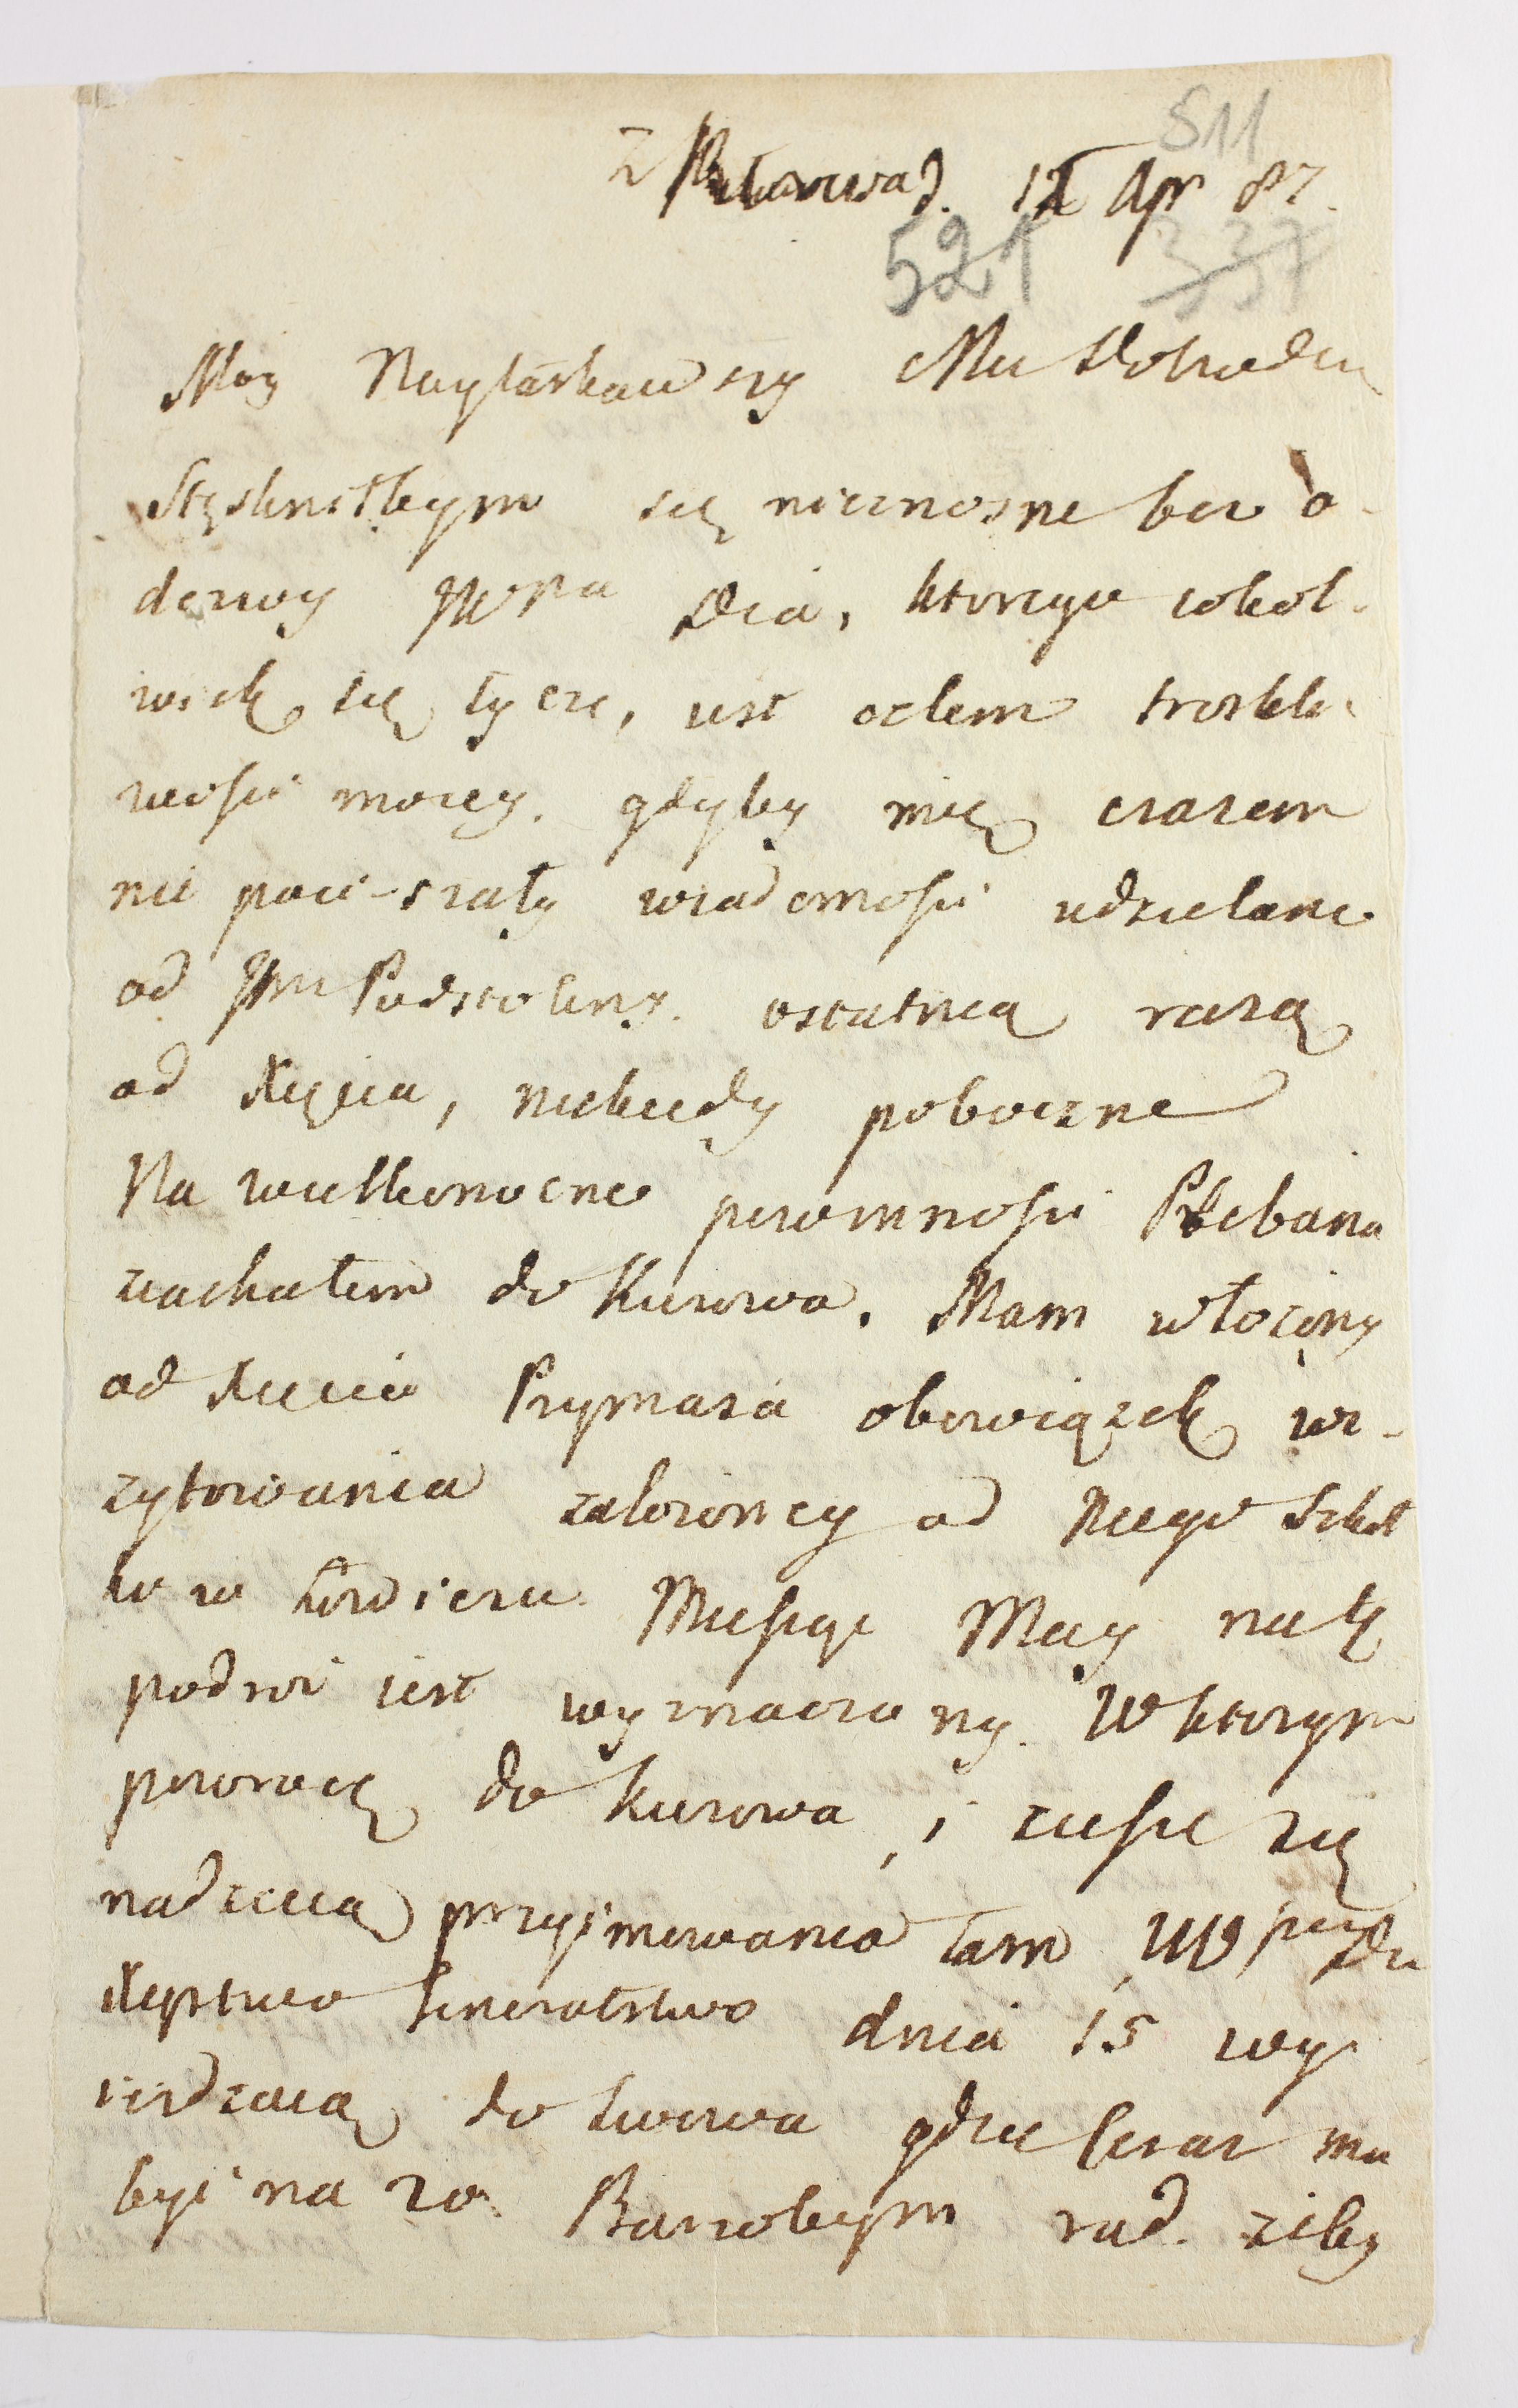 511
Z Puław d. 12 Apr 87.
521 337
Moy Nayłaskawszy Mu Dobrodzieiu
Stęskniłbym się nieznosnie bez o-
dezwy JWPa Dia, ktorego cokol-
wiek się tycze, iest celem troskli-
wości moiey. gdyby mię czasem
nie pocieszały wiadomości udzielane
od Jm Podstoliny. ostatnią razą
od Xięcia, niekiedy poboczne
Na wielkonocne powinności Plebana
ziachałem do Kurowa. Mam włożony
od Xięcia Prymasa obowiązek wi-
zytowania założoney od Niego Szkoł
ki w Łowiczu. Miesiąc May na tę
podroż iest wyznaczony. W ktorym
powrocę do Kurowa, i cieszę się
nadzieią przyimowania tam WWpaństwa Dz
Xięstwo Generałstwo dnia 15 wy
ieżdzaią do Lwowa gdzie Cesarz ma
być na 20. Barzobym rad. żeby